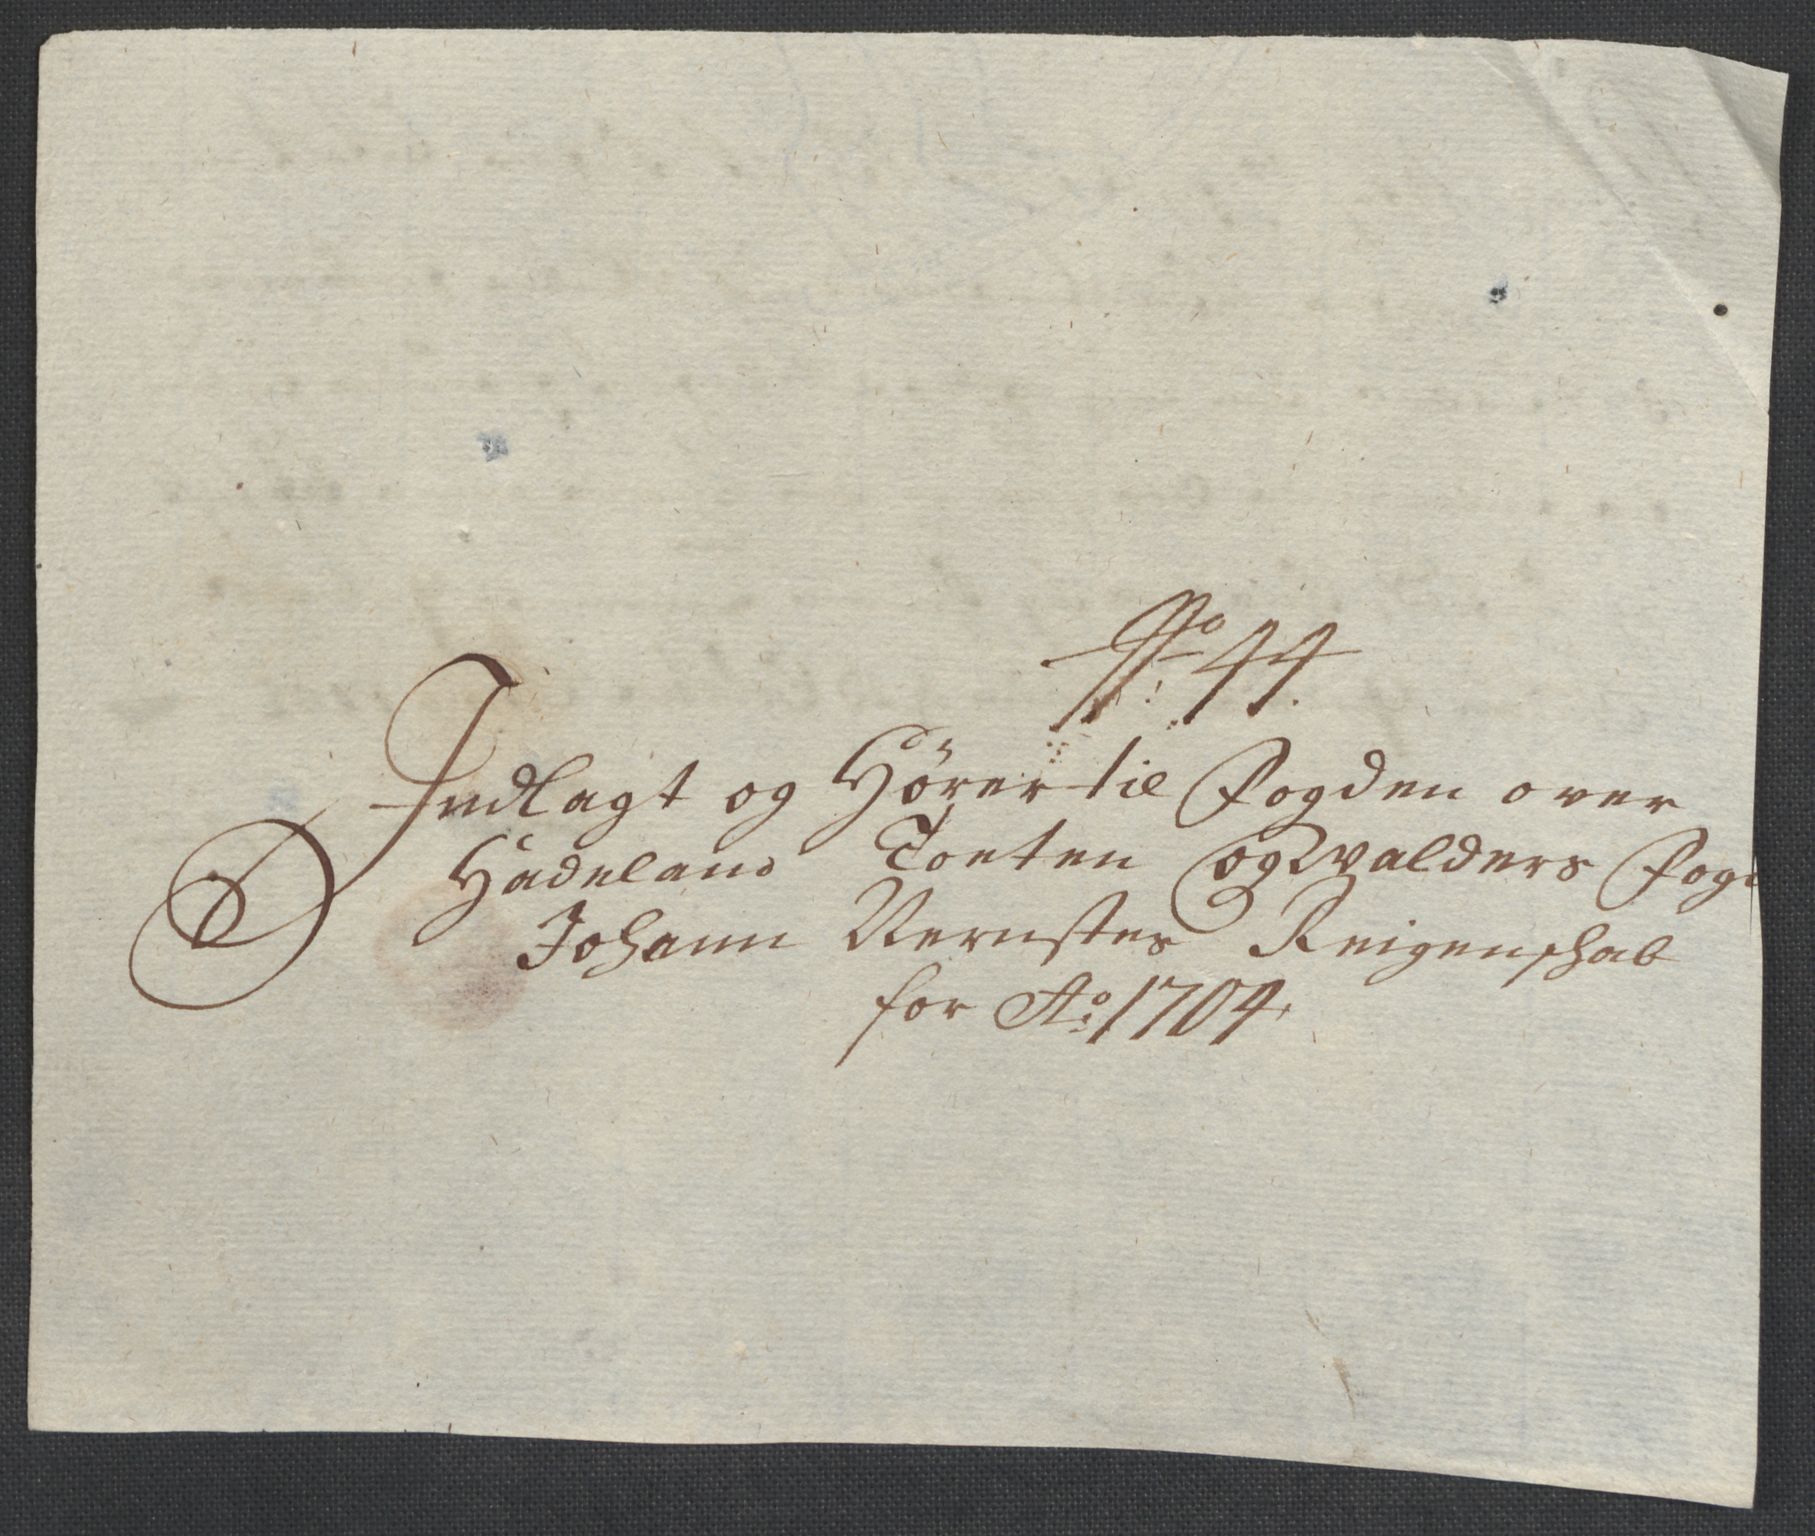 No: 44.
Indlagt og Hører til Fogden over
Hadeland Toeten og Valders Fog
Johann Vernstes Reigenschab
for Ao: 1704.